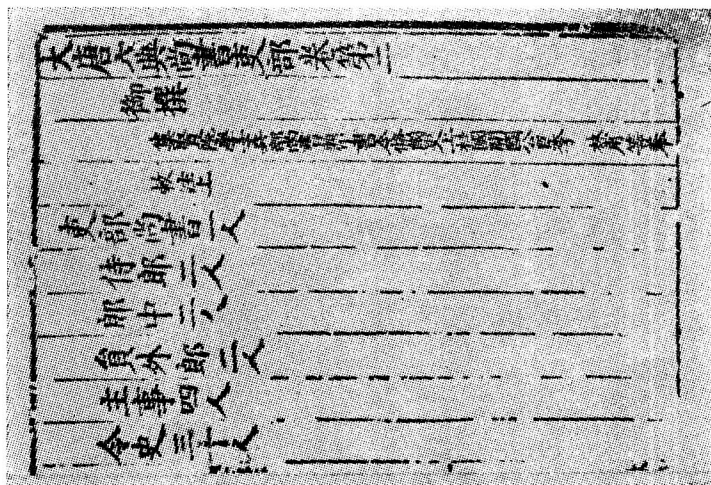 大唐六典尚書吏部卷第二
御撰
集賢院學士兵部尚書兼中書令修國史上柱國開國公臣李林甫等奉
敕注上
吏部尚書一人
侍郎二人
郎中二人
員外郎二人
主事四人
令史三十人